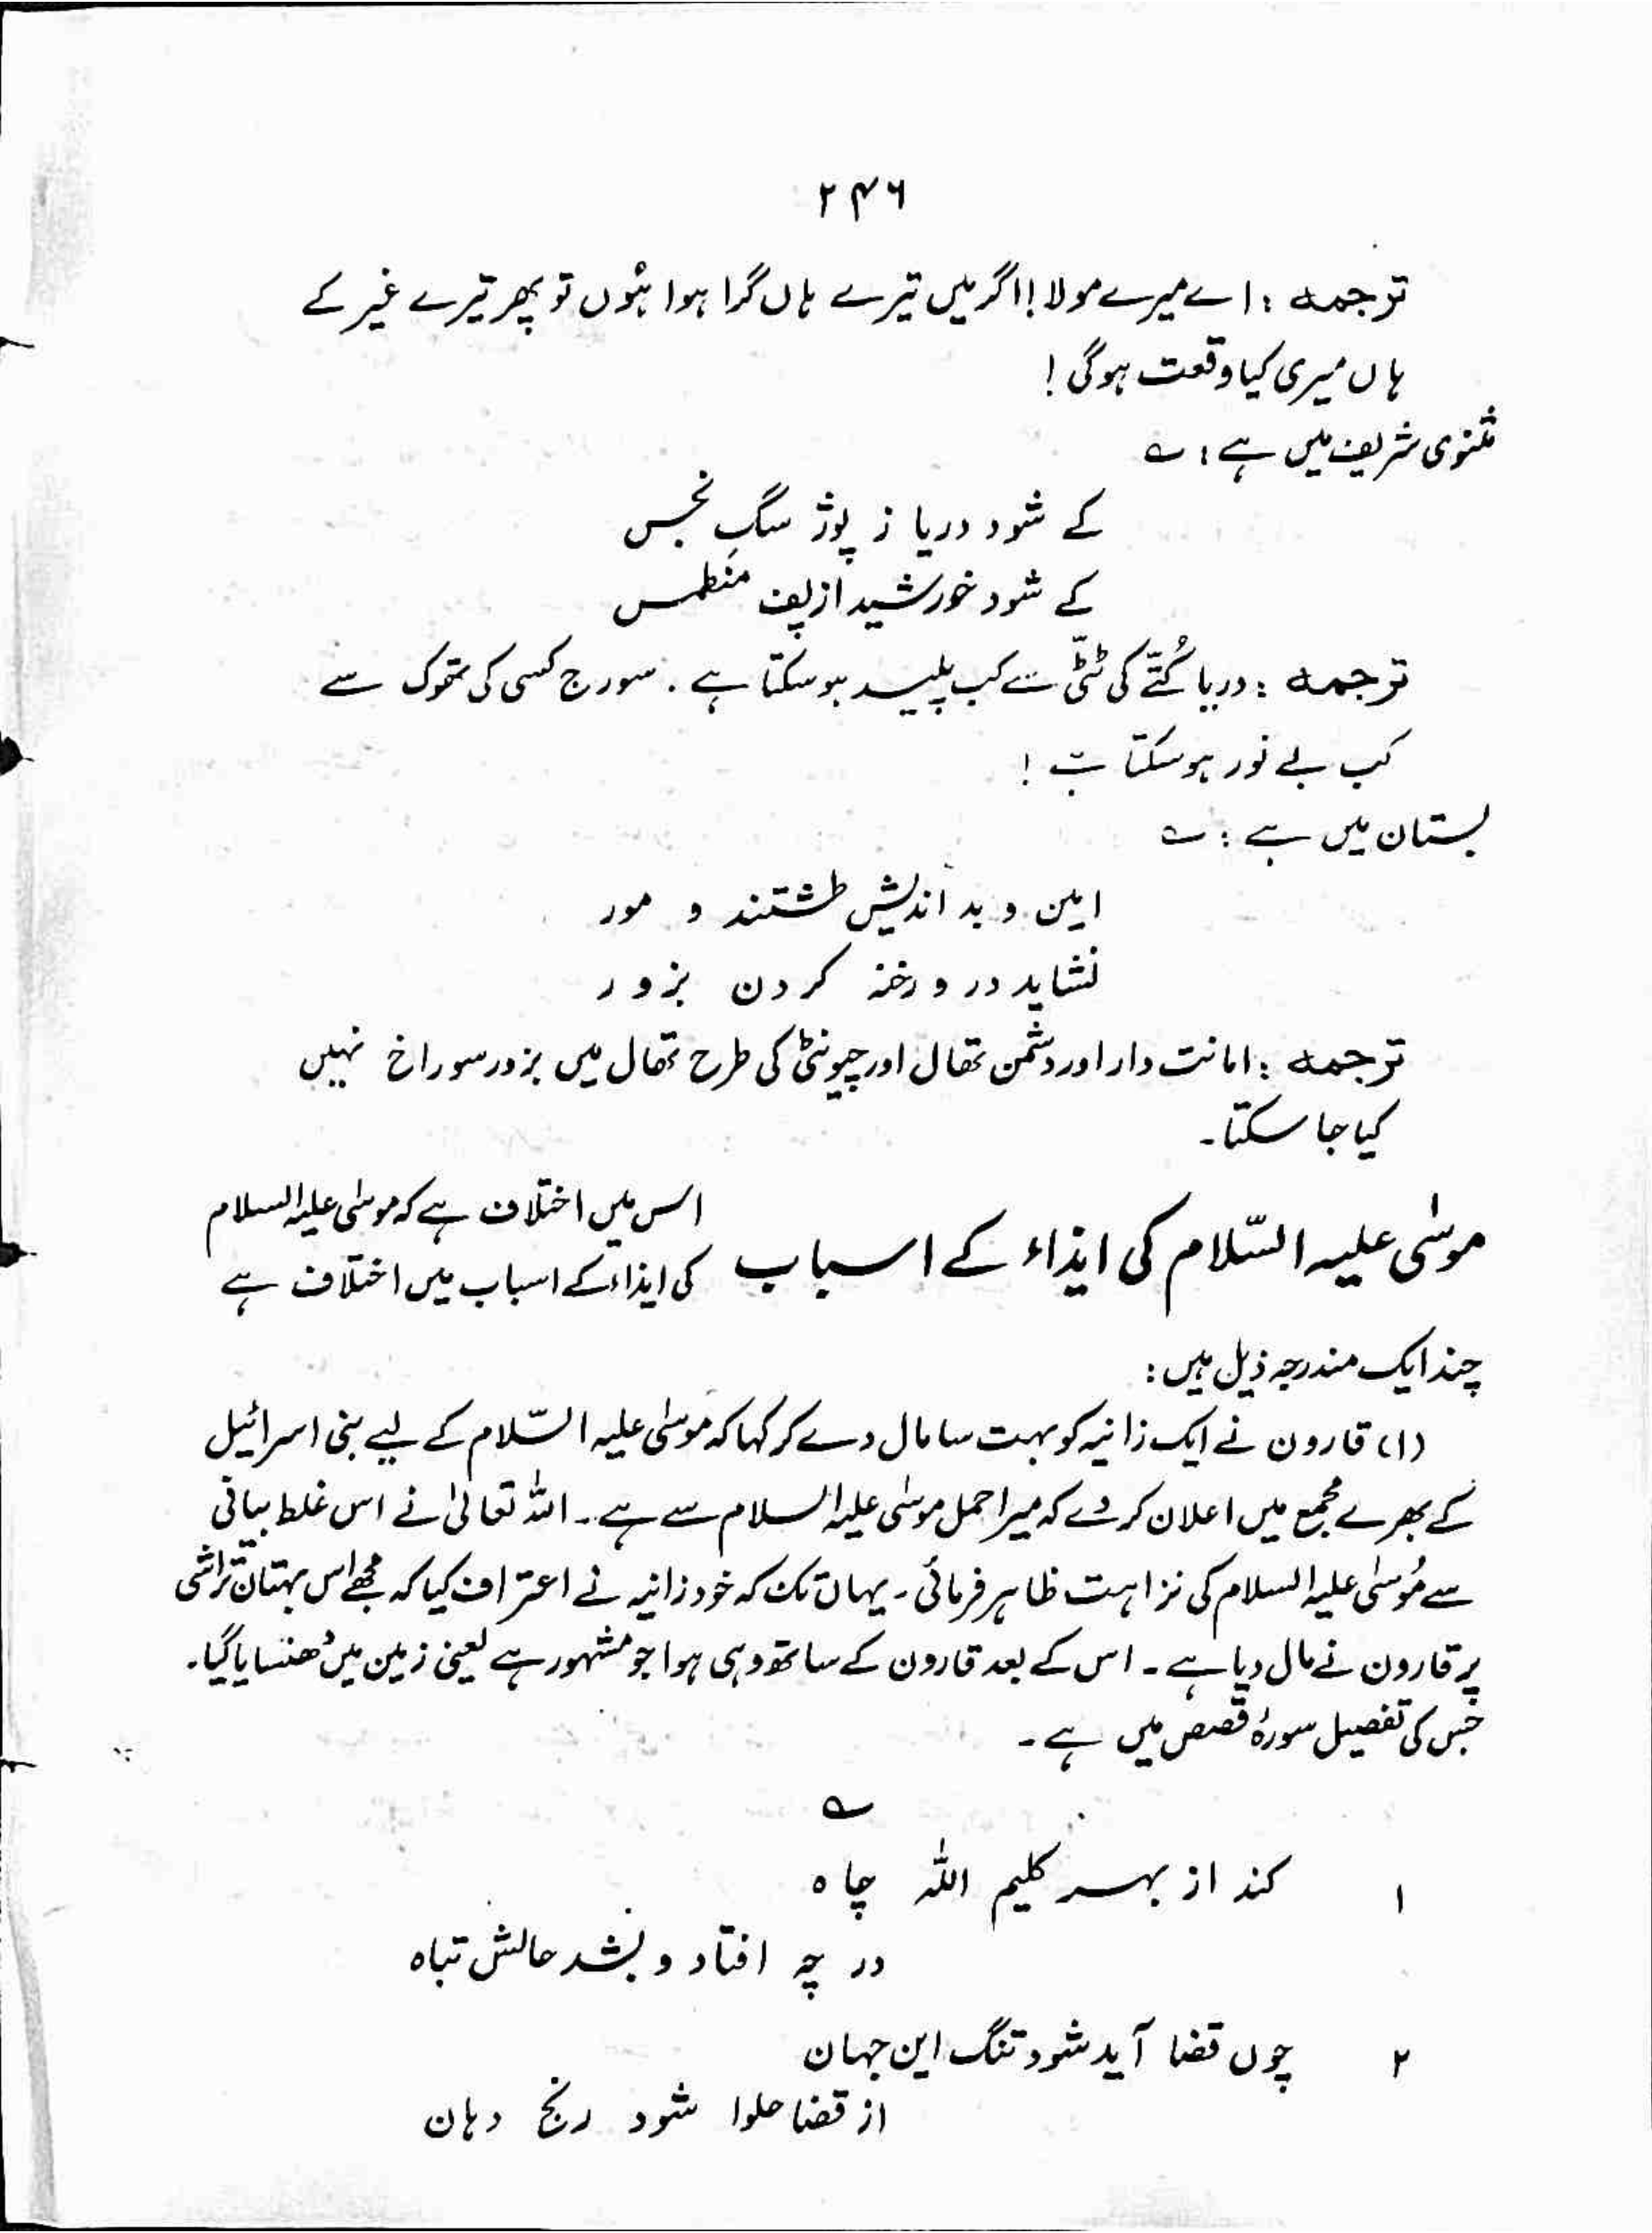 ۲۴۶
ترجمہ : اے میرے مولا ! اگر میں تیرے ہاں گرا ہوا ہُوں تو پھر تیرے غیر کے
ہاں میری کیا وقعت ہوگی !
مثنوی شریف میں ہے : ؎
کے شود دریا ز پوژ سگِ نجس
کے شود خورشید از پف منطمس
ترجمہ : دریا کُتّے کی ٹٹّی سے کب پلید ہوسکتا ہے . سورج کسی کی تھوک سے
کب بے نور ہوسکتا ہے !
بستان میں ہے : ؎
امین و بد اندیش طشتند و مور
نشاید درو رخنہ کردن بزور
ترجمہ : امانت دار اور دشمن تھال اور چیونٹی کی طرح تھال میں بزور سوراخ نہیں
کیا جا سکتا ۔
موسٰی علیہ السّلام کی ایذاء کے اسباب اس میں اختلاف ہے کہ موسٰی علیہ السلام
کی ایذاء کے اسباب میں اختلاف ہے
چند ایک مندرجہ ذیل ہیں :
(۱) قارون نے ایک زانیہ کو بہت سا مال دے کر کہا کہ موسٰی علیہ السّلام کے لیے بنی اسرائیل
کے بھرے مجمع میں اعلان کر دے کہ میرا حمل موسٰی علیہ السلام سے ہے ۔ اللہ تعالیٰ نے اس غلط بیانی
سے مُوسٰی علیہ السلام کی نزاہت ظاہر فرمائی ۔ یہاں تک کہ خود زانیہ نے اعتراف کیا کہ مجھے اس بہتان تراشی
پر قارون نے مال دیا ہے ۔ اس کے بعد قارون کے ساتھ وہی ہوا جو مشہور ہے یعنی زمین میں دھنسایا گیا ۔
جس کی تفصیل سورۂ قصص میں ہے ۔
؎
۱ کند از بہر کلیم اللہ چاہ
در چہ افتاد و بشد حالش تباہ
۲ چوں قضا آید شود تنگ این جہان
از قضا حلوا شود رنج دہان